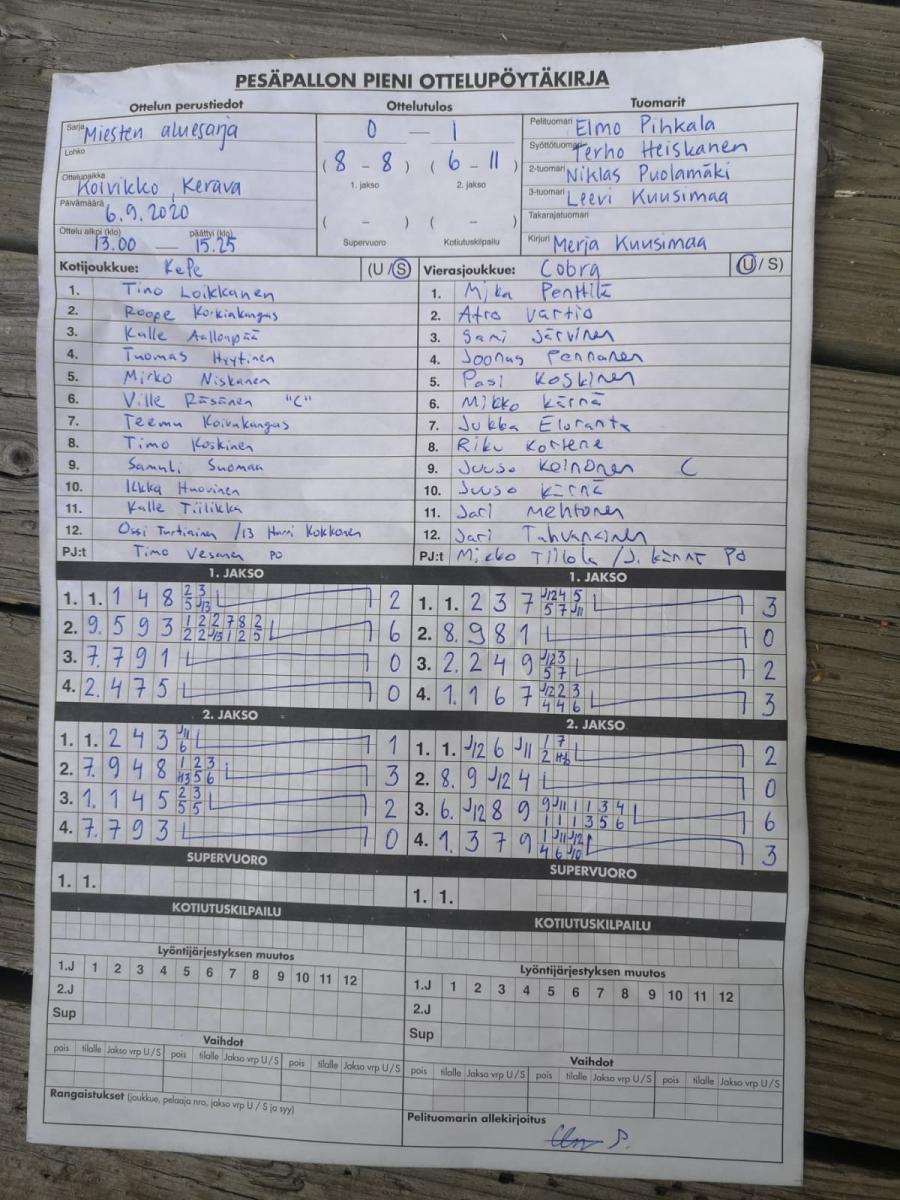 PESÄPALLON PIENI OTTELUPÖYTÄKIRJA
Ottelun perustiedot Ottelutulos Tuomarit
Sarja Miesten aluesarja
Lohko
Ottelupaikka Koivikko, Kerava
Päivämäärä 6.9.2020
Ottelu alkoi (klo) päättyi (klo)
13.00 — 15.25
0 — 1
( 8 - 8 ) ( 6 - 11 )
1. jakso 2. jakso
( - ) ( - )
Supervuoro Kotiutuskilpailu
Pelituomari Elmo Pihkala
Syöttötuomari Terho Heiskanen
2-tuomari Niklas Puolamäki
3-tuomari Leevi Kuusimaa
Takarajatuomari
Kirjuri Merja Kuusimaa
Kotijoukkue: KePe (U / S)
1. Timo Loikkanen
2. Roope Korkiakangas
3. Kalle Aallonpää
4. Tuomas Hyytinen
5. Mirko Niskanen
6. Ville Räsänen "C"
7. Teemu Koivukangas
8. Timo Koskinen
9. Samuli Suomaa
10. Ilkka Huovinen
11. Kalle Tiilikka
12. Ossi Turtiainen /13 Harri Kokkonen
PJ:t Timo Vesanen PO
Vierasjoukkue: Cobra (U / S)
1. Mika Penttilä
2. Atro Vartio
3. Sami Järvinen
4. Joonas Pennanen
5. Pasi Koskinen
6. Mikko Kärnä
7. Jukka Eloranta
8. Riku Kortene
9. Juuso Keinonen C
10. Juuso Kärnä
11. Jari Mehtonen
12. Jari Tahvanainen
PJ:t Mikko Tiilola / J. Kärnä PO
1. JAKSO
1. 1. 1 4 8 2 3 2
5 J13
2. 9. 5 9 3 1 2 2 7 8 2 6
2 2 J13 1 2 5
3. 7. 7 9 1 0
4. 2. 4 7 5 0
2. JAKSO
1. 1. 2 4 3 J11 1
6
2. 7. 9 4 8 1 2 3 3
H3 5 6
3. 1. 1 4 5 2 3 2
5 5
4. 7. 7 9 3 0
SUPERVUORO
1. 1.
KOTIUTUSKILPAILU
1. JAKSO
1. 1. 2 3 7 J12 4 5 3
5 7 J11
2. 8. 9 8 1 0
3. 2. 2 4 9 J12 3 2
5 7
4. 1. 1 6 7 J12 2 3 3
4 4 6
2. JAKSO
1. 1. J12 6 J11 1 7 2
2
2. 8. 9 J12 4 0
3. 6. J12 8 9 9 J11 1 1 3 4 6
1 1 1 3 5 6
4. 1. 3 7 9 1 J11 J12 3
4 6 J10
SUPERVUORO
1. 1.
KOTIUTUSKILPAILU
Lyöntijärjestyksen muutos
1.J 1 2 3 4 5 6 7 8 9 10 11 12
2.J
Sup
Vaihdot
pois tilalle Jakso vrp U / S pois tilalle Jakso vrp U / S pois tilalle Jakso vrp U / S
Rangaistukset (joukkue, pelaaja nro, jakso vrp U / S ja syy)
Lyöntijärjestyksen muutos
1.J 1 2 3 4 5 6 7 8 9 10 11 12
2.J
Sup
Vaihdot
pois tilalle Jakso vrp U / S pois tilalle Jakso vrp U / S pois tilalle Jakso vrp U / S
Pelituomarin allekirjoitus